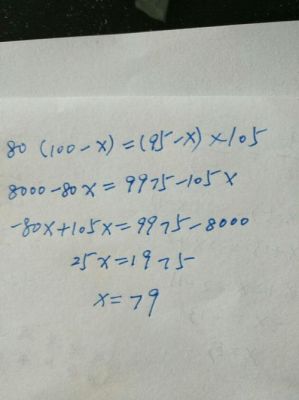 80 (100-x)=(95-x)×105
8000-80x=9975-105x
-80x+105x=9975-8000
25x=1975
x=79